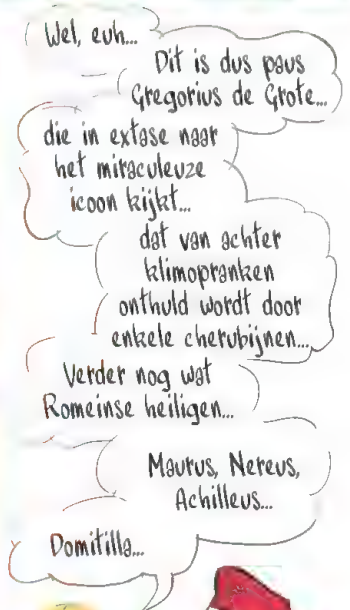 Wel, euh...
Dit is dus paus
Gregorius de Grote...
die in extase naar
het miraculeuze
icoon kijkt...
dat van achter
klimopranken
onthuld wordt door
enkele cherubijnen...
Verder nog wat
Romeinse heiligen...
Maurus, Nereus,
Achilleus...
Domitilla...